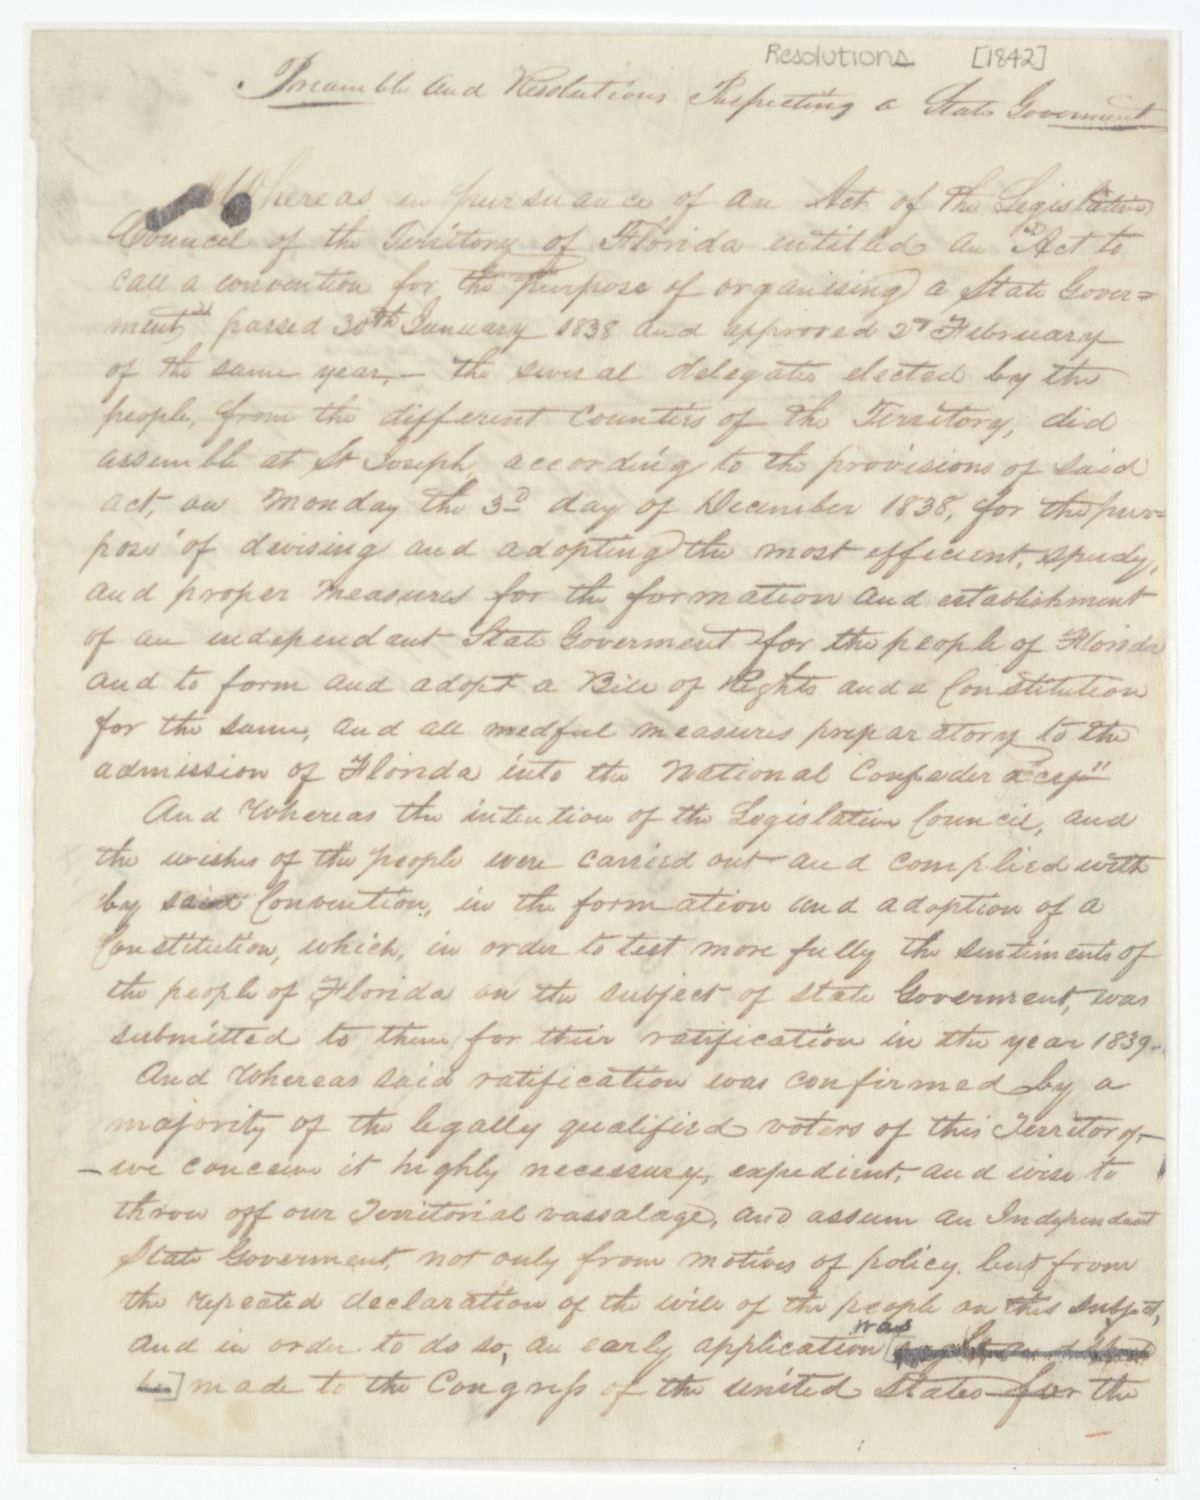 Resolutions [1842]
Preamble and Resolutions Respecting a State Goverment
Whereas in pursuance of an Act of the Legislative
Council of the Territory of Florida entitled an "Act to
call a convention for the purpose of organising a State Gover=
ment" passed 30th January 1838 and approved 2d February
of the same year,— the several delegates elected by the
people, from the different Counties of the Territory, did
assemble at St Joseph, according to the provisions of said
act, on Monday the 3D day of December 1838, for the pur=
pose "of devising and adopting the most efficient, speedy,
and proper measures for the formation and establishment
of an independent State Goverment for the people of Florida
and to form and adopt a Bill of Rights and a Constitution
for the same, and all needful measures preparatory to the
admission of Florida into the National Confederacy"
And Whereas the intention of the Legislative Council, and
the wishes of the people were carried out and complied with
by said Convention, in the formation and adoption of a
Constitution, which, in order to test more fully the sentiments of
the people of Florida on the subject of state Goverment, was
submitted to them for their ratification in the year 1839—
And Whereas said ratification was confirmed by a
majority of the legally qualified voters of this Territory—
—we conceive it highly necessary, expedient, and wise to
throw off our Territorial vassalage, and assum an Independent
State Goverment, not only from motives of policy, but from
the repeated declaration of the will of the people on this subject,
and in order to do so, an early application was [
be] made to the Congress of the United States for the